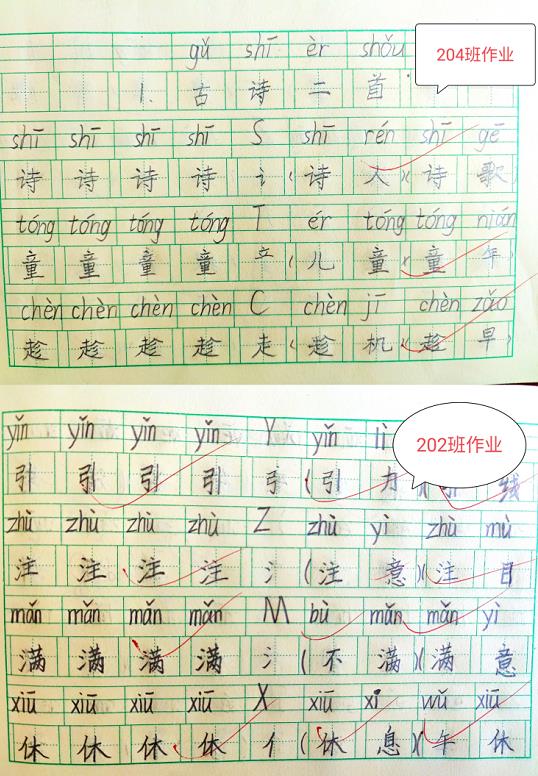 gǔ shī èr shǒu
204班作业
1. 古 诗 二 首
shī shī shī shī S shī rén shī gē
诗 诗 诗 诗 讠(诗 人)(诗 歌)
tóng tóng tóng tóng T ér tóng tóng nián
童 童 童 童 立(儿 童)(童 年)
chèn chèn chèn chèn C chèn jī chèn zǎo
趁 趁 趁 趁 走(趁 机)(趁 早)
yǐn yǐn yǐn yǐn Y yǐn lì
202班作业
引 引 引 引 弓(引 力)(引 线
zhù zhù zhù zhù Z zhù yì zhù mù
注 注 注 注 氵(注 意)(注 目
mǎn mǎn mǎn mǎn M bù mǎn mǎn yì
满 满 满 满 氵(不 满)(满 意
xiū xiū xiū xiū X xiū xi wǔ xiū
休 休 休 休 亻(休 息)(午 休